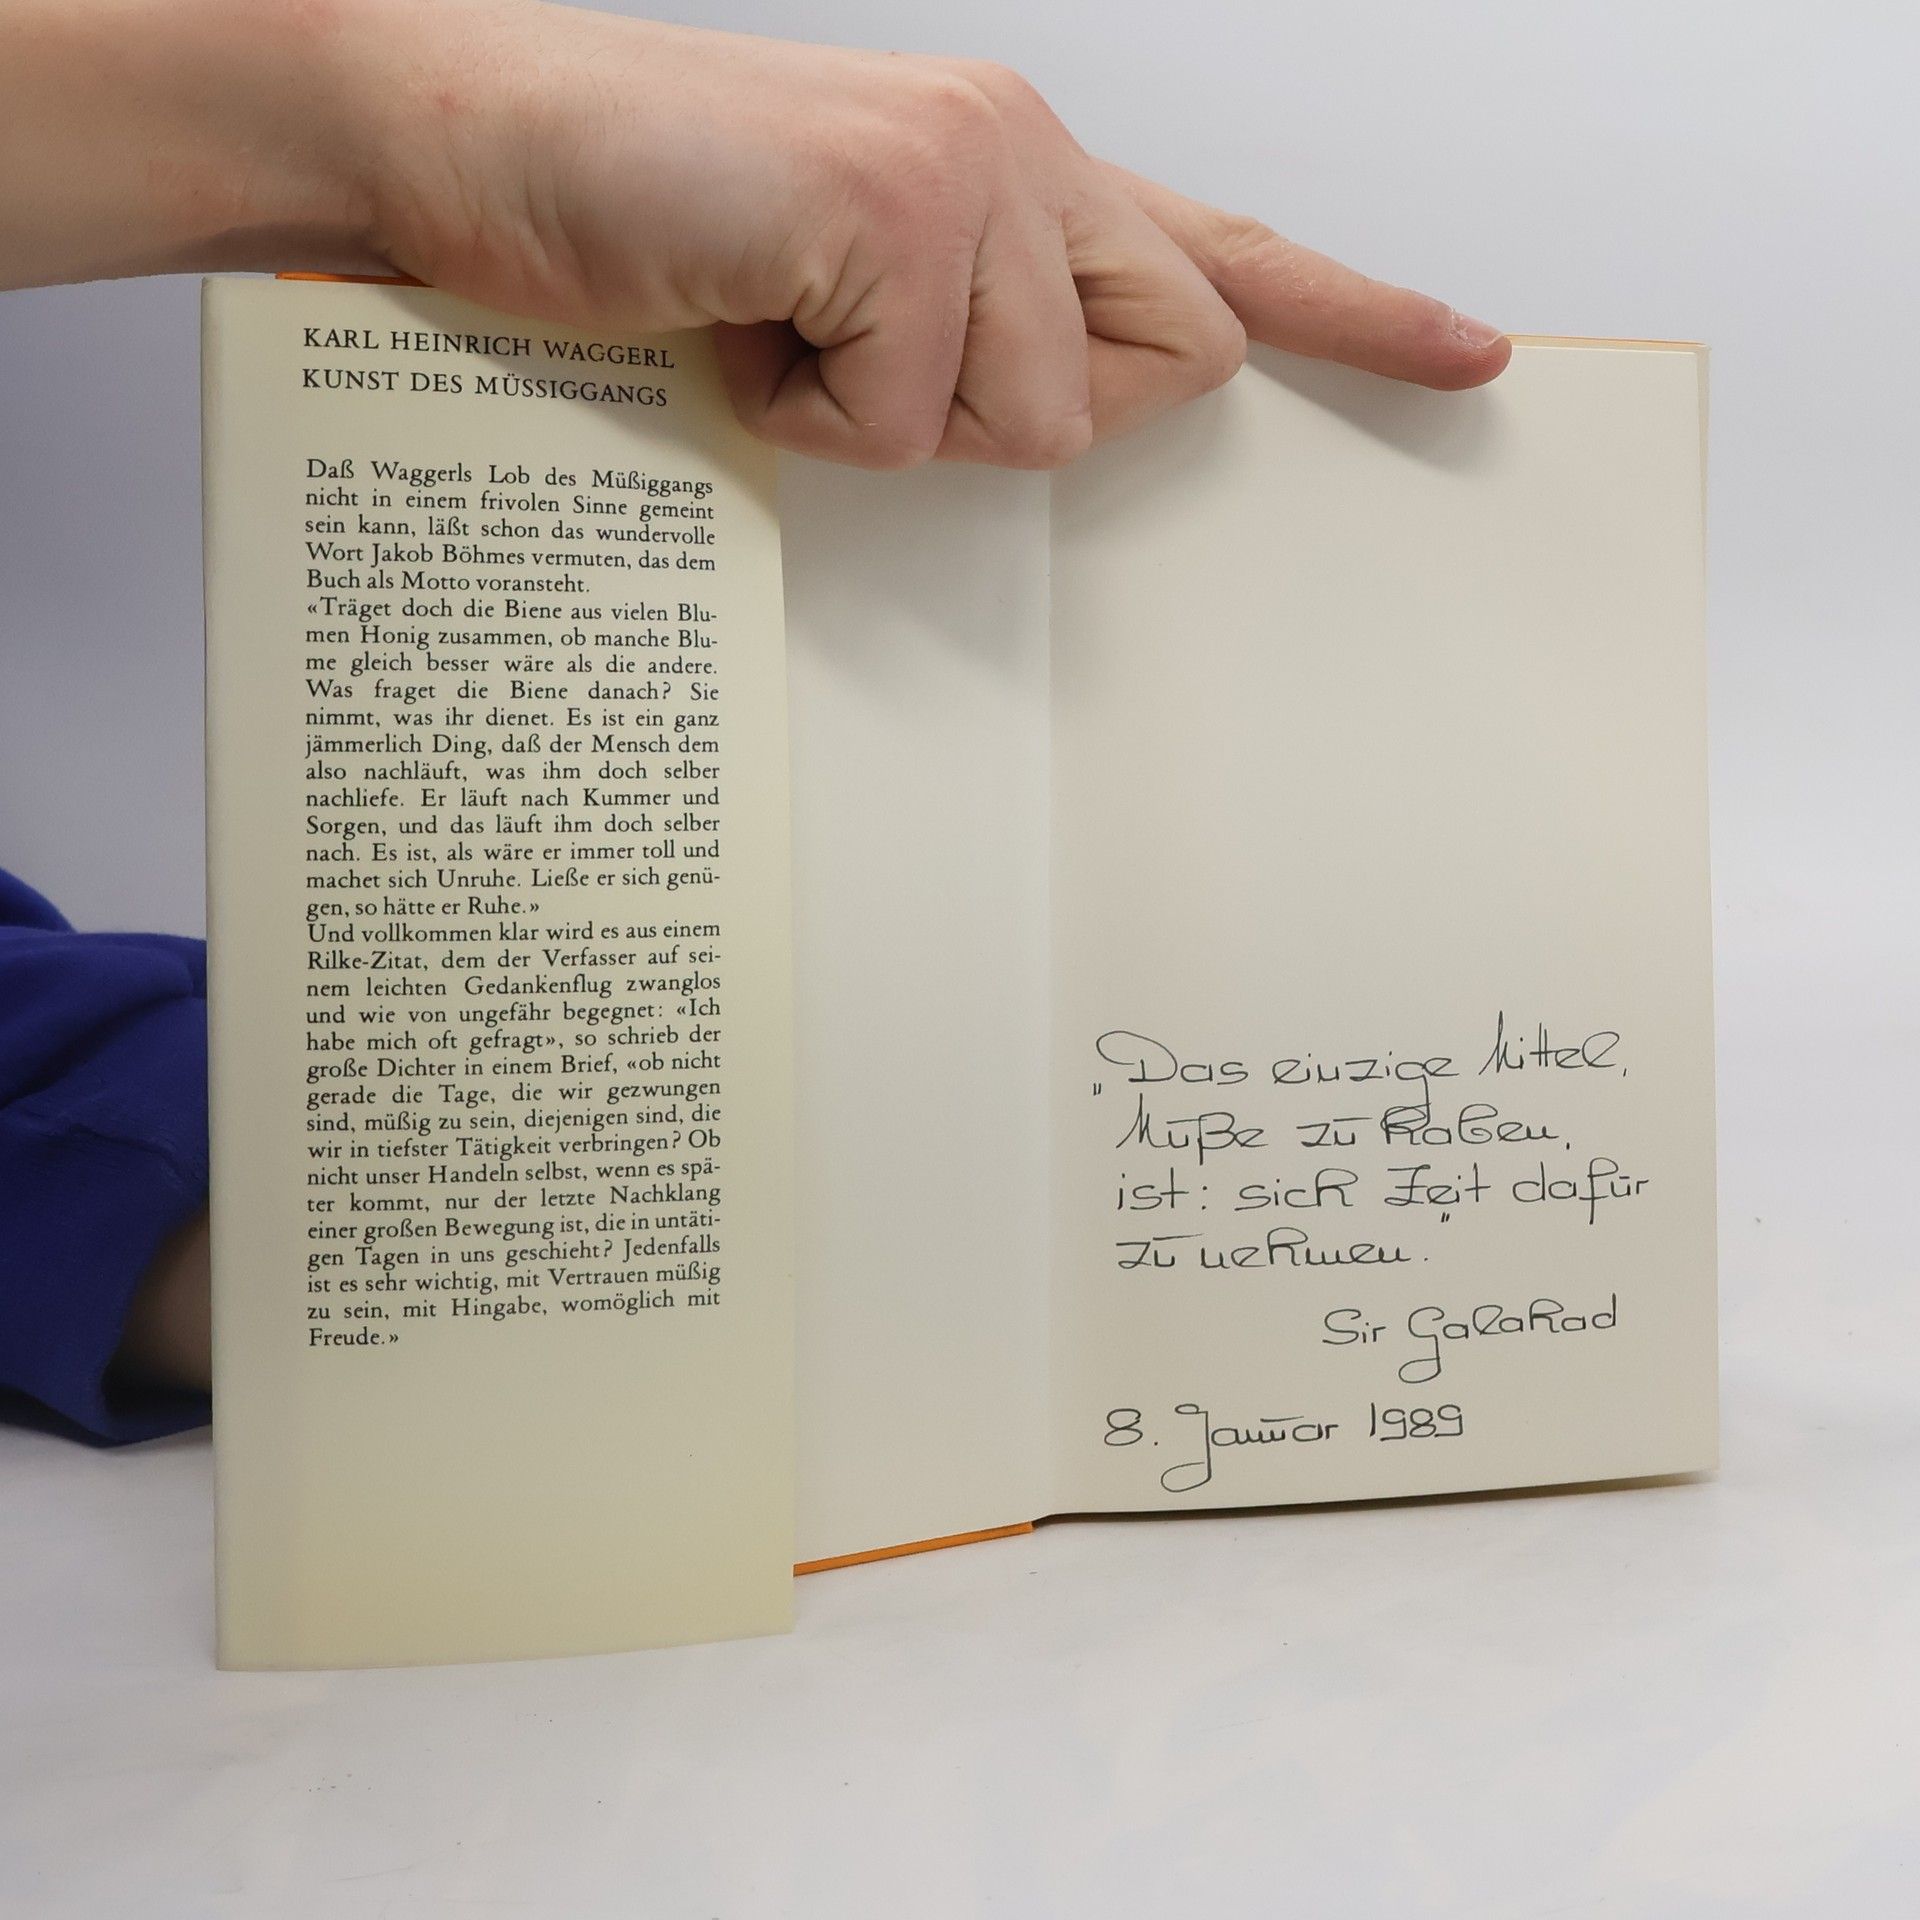 KARL HEINRICH WAGGERL
KUNST DES MÜSSIGGANGS
Daß Waggerls Lob des Müßiggangs
nicht in einem frivolen Sinne gemeint
sein kann, läßt schon das wundervolle
Wort Jakob Böhmes vermuten, das dem
Buch als Motto voransteht.
«Träget doch die Biene aus vielen Blu-
men Honig zusammen, ob manche Blu-
me gleich besser wäre als die andere.
Was fraget die Biene danach? Sie
nimmt, was ihr dienet. Es ist ein ganz
jämmerlich Ding, daß der Mensch dem
also nachläuft, was ihm doch selber
nachliefe. Er läuft nach Kummer und
Sorgen, und das läuft ihm doch selber
nach. Es ist, als wäre er immer toll und
machet sich Unruhe. Ließe er sich genü-
gen, so hätte er Ruhe.»
Und vollkommen klar wird es aus einem
Rilke-Zitat, dem der Verfasser auf sei-
nem leichten Gedankenflug zwanglos
und wie von ungefähr begegnet: «Ich
habe mich oft gefragt», so schrieb der
große Dichter in einem Brief, «ob nicht
gerade die Tage, die wir gezwungen
sind, müßig zu sein, diejenigen sind, die
wir in tiefster Tätigkeit verbringen? Ob
nicht unser Handeln selbst, wenn es spä-
ter kommt, nur der letzte Nachklang
einer großen Bewegung ist, die in untäti-
gen Tagen in uns geschieht? Jedenfalls
ist es sehr wichtig, mit Vertrauen müßig
zu sein, mit Hingabe, womöglich mit
Freude.»
„Das einzige Mittel,
Muße zu haben,
ist: sich Zeit dafür
zu nehmen."
Sir Galahad
8. Januar 1989